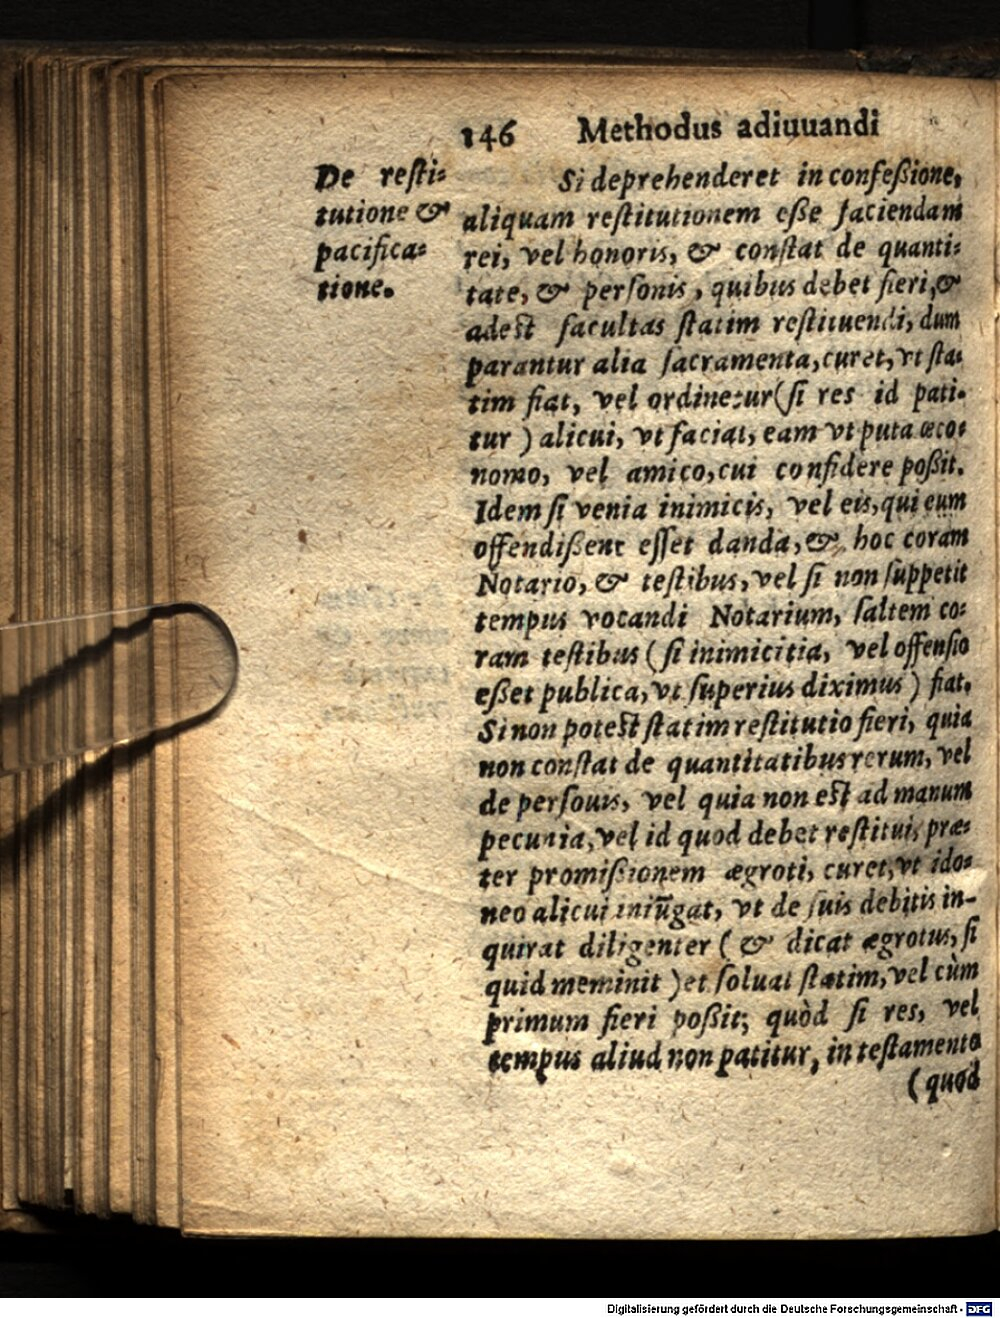 146 Methodus adiuuandi
De resti-
tutione &
pacifica-
tione.
Si deprehenderet in confeßione,
aliquam restitutionem eße faciendam
rei, vel honoris, & constat de quanti-
tate, & personis, quibus debet fieri, &
adest facultas statim restituendi, dum
parantur alia sacramenta, curet, vt sta-
tim fiat, vel ordinetur (si res id pati-
tur) alicui, vt faciat, eam vt puta œco-
nomo, vel amico, cui confidere poßit.
Idem si venia inimicis, vel eis, qui eum
offendißent esset danda, & hoc coram
Notario, & testibus, vel si non suppetit
tempus vocandi Notarium, saltem co-
ram testibus (si inimicitia, vel offensio
eßet publica, vt superius diximus) fiat.
Si non potest statim restitutio fieri, quia
non constat de quantitatibus rerum, vel
de persouis, vel quia non est ad manum
pecunia, vel id quod debet restitui, præ-
ter promißionem ægroti, curet, vt ido-
neo alicui iniūgat, vt de suis debitis in-
quirat diligenter (& dicat ægrotus, si
quid meminit) et soluat statim, vel cùm
primum fieri poßit; quòd si res, vel
tempus aliud non patitur, in testamento
(quod
Digitalisierung gefördert durch die Deutsche Forschungsgemeinschaft - DFG